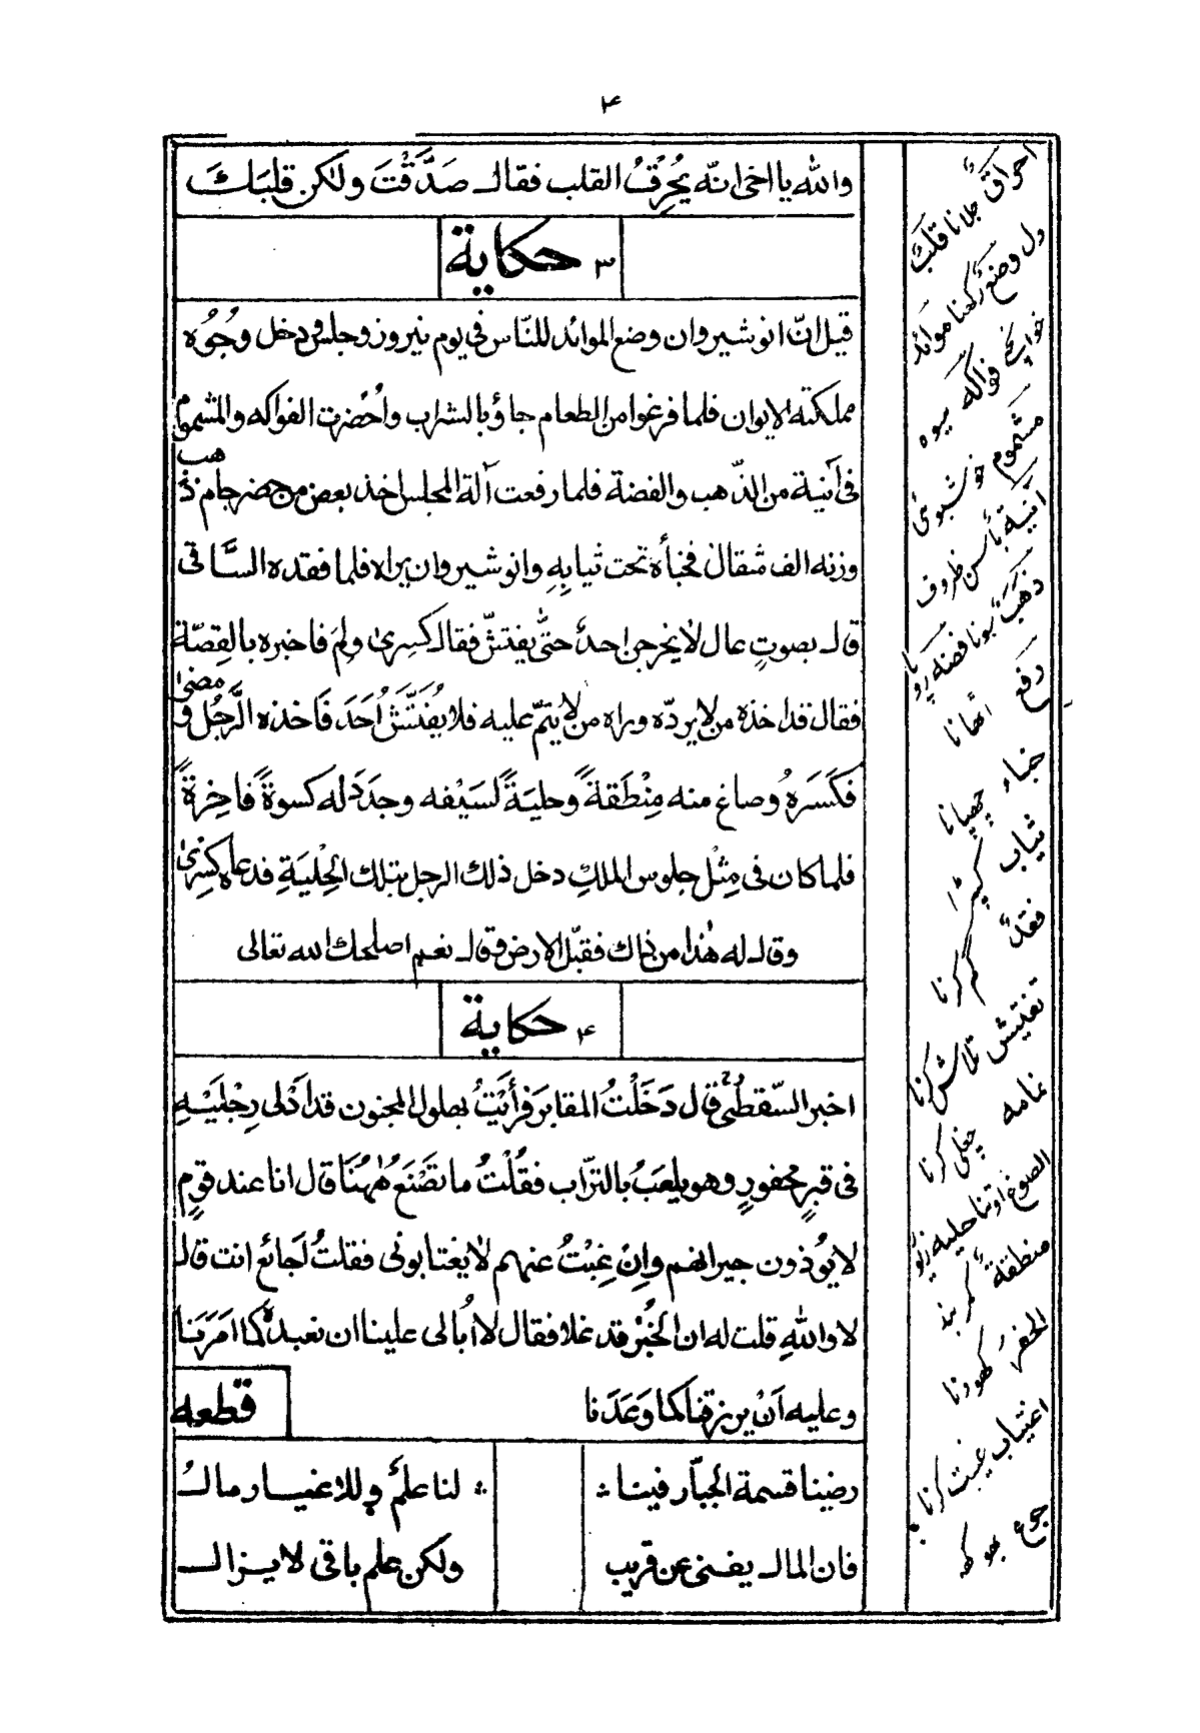 ۴
والله يا اخى انّه يُحْرِقُ القلب فقال صَدَّقْتَ ولٰكن قلبَكَ
۳ حكاية
قيل انّ انوشيروان وضع الموائد للنّاس فى يوم نيروز وجلس ودخل وُجُوْه
مملكته الايوان فلما فرغوا من الطعام جاؤ بالشراب واُحْضِرت الفواكه والمشموم
فى آنية من الذّهب والفضة فلما رفعت آلة المجلس اخذ بعض من حضر جام ذهب
وزنه الف مثقال فخبأه تحت ثيابِهِ وانوشيروان يراه فلما فقده السَّاقى
قال بصوتٍ عال لا يخرجن احدٌ حتّٰى يفتشّ فقال كسِرىٰ ولِمَ فاخبره بالقِصّة
فقال قد اخذه من لا يردّه وراه من لا يتمّ عليه فلا يُفَتَّش اَحَد فَاخذه الرَّجُل ومضىٰ
فكَسَرَهُ وصاغ منه مِنْطَقةً وحليَةً لسَيْفه وجدَدَ له كسوةً فاخِرةً
فلما كان فى مِثْل جلوس الملكِ دخل ذلك الرجل بتلك الحِلْيَةِ فدعاه كِسْرىٰ
وقال له هٰذا من ذاك فقبّل الارض وقال نعم اصلحك الله تعالى
۴ حكاية
اخبر السّقطىُّ قال دَخَلْتُ المقابر فرأيْتُ بهلول المجنون قد اَدْلى رِجْلَيْهِ
فى قبرٍ محفورٍ وهو يلعَبُ بالترّاب فقُلْتُ ما تصْنَع هٰهُنَا قال انا عند قوم
لا يؤذون جيرانهم وانْ غِبْتُ عنهم لا يغتابونى فقلتُ لَجائع انت قال
لا واللهِ قلت له ان الخبْز قد غلا فقال لا اُبالى علينا ان نعبده كما امَرَنا
وعليه اَنْ يرزقنا كما وَعَدَنا
قطعه
رضينا قسمة الجبّار فينا ؞ لنا علمٌ وللاغيار مالُ
فان المال يفنى عن قريب ولكن علم باقى لا يزال
احراقٌ جلانا قلبٌ
دل وضعٌ ركهنا موائد
خوانچے فواكه ميوه
مشموم خوشبوئى
آنيةٌ باسن ظروف
ذهبٌ سونا فضه روپا
رفع اٹهانا
خباء چهپانا
ثياب كپڑے
فقدٌ گم كرنا
تفتيش تلاش كرنا
نمامه چغلى كرنا
الصوغ اوٹنا حليه زيور
منطقة كمر بند
الحفر كهودنا
اغتياب غيبت كرنا
جوع بهوكه